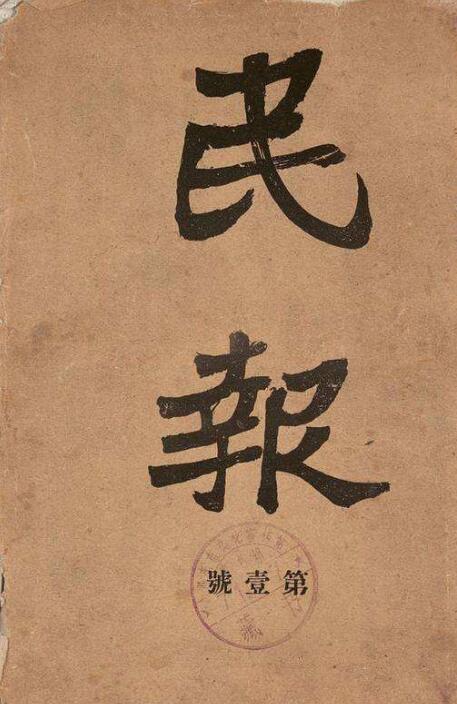 民報
第壹號
藏